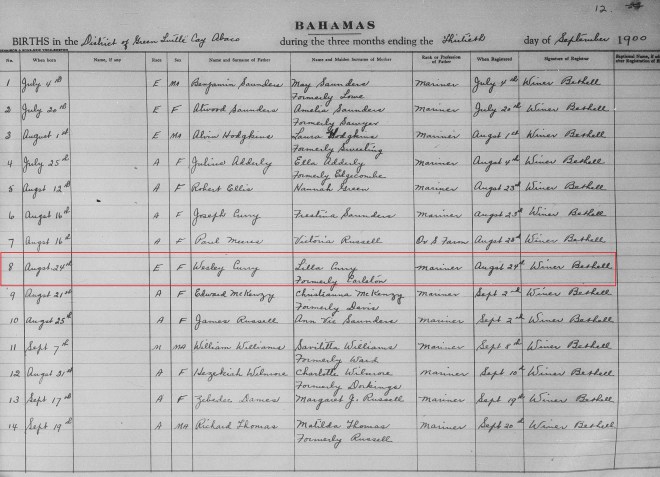 12.
BAHAMAS
BIRTHS in the District of Green Turtle Cay Abaco during the three months ending the Thirtieth day of September 1900
No. When born Name, if any Race Sex Name and Surname of Father Name and Maiden Surname of Mother Rank or Profession of Father When Registered Signature of Registrar
1 July 4th E MA Benjamin Saunders May Saunders Mariner July 4th Winer Bethell
Formerly Lowe
2 July 20th E F Atwood Saunders Amelia Saunders Mariner July 20th Winer Bethell
Formerly Sawyer
3 August 1st E MA Alvin Hodgkins Laura Hodgkins Mariner August 1st Winer Bethell
Formerly Sweeting
4 July 25th A F Julius Adderly Ella Adderly Mariner Augst 4th Winer Bethell
Formerly Edgecombe
5 Augst 12th A F Robert Ellis Hannah Green Mariner Augst 23d Winer Bethell
6 Augst 16th A F Joseph Curry Frestina Saunders Mariner Augst 23d Winer Bethell
7 Augst 16th A F Paul Victoria Russell Farm Augst Winer Bethell
8 Augst 24th E F Wesley Curry Lilla Curry Mariner Augst 24th Winer Bethell
Formerly Carlston
9 Augst 21st A F Edward McKenzy Christianna McKenzy Mariner Sept 2nd Winer Bethell
Formerly Davis
10 Augst 25th A F James Russell Ann Vie Saunders Mariner Sept 2nd Winer Bethell
11 Sept 7th MA William Williams Savilitta Williams Mariner Sept 8th Winer Bethell
Formerly Ward
12 Augst 31st A F Hezekiah Wilmore Charlotte Wilmore Mariner Sept 10th Winer Bethell
Formerly Dorkings
13 Sept 17th A F Zebedee Dames Margaret J. Russell Mariner Sept 19th Winer Bethell
14 Sept 19th A MA Richard Thomas Matilda Thomas Mariner Sept 20th Winer Bethell
Formerly Russell